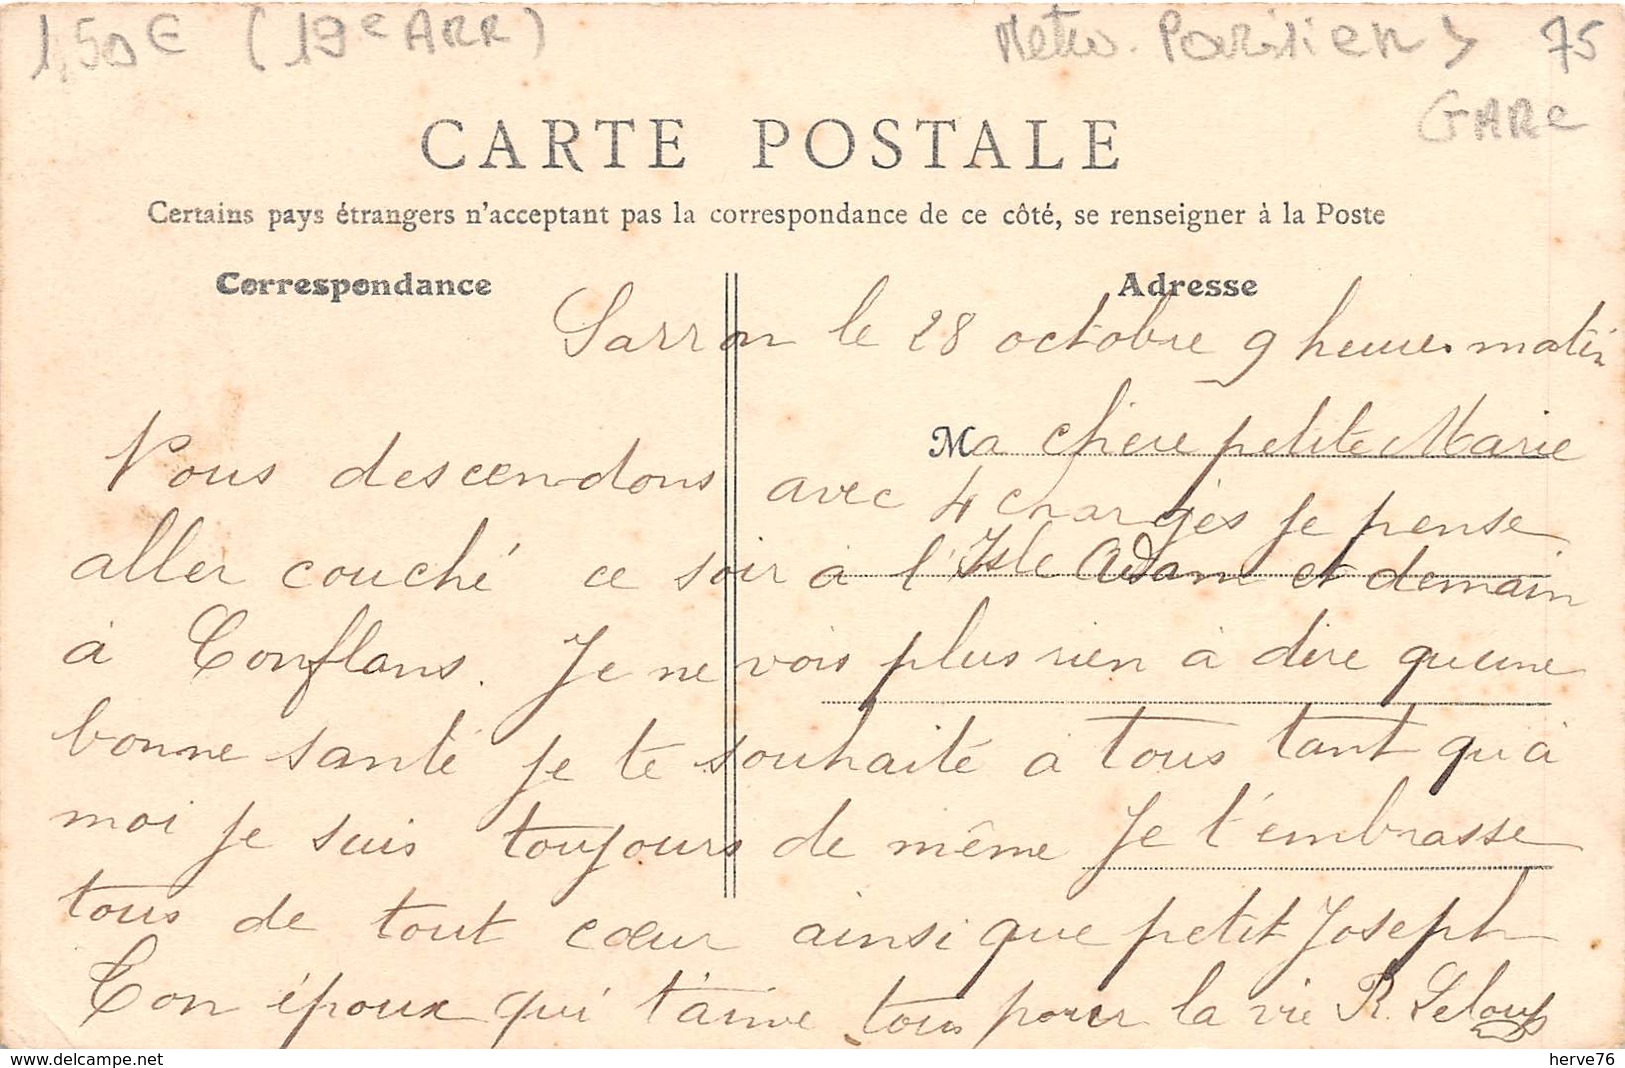 1,50 € (19e ARR)
Metro. Parisien > 75
GARE
CARTE POSTALE
Certains pays étrangers n'acceptant pas la correspondance de ce côté, se renseigner à la Poste
Correspondance
Adresse
Sarron le 28 octobre 9 heures matin
Ma chère petite Marie
Nous descendons avec 4 chargés je pense
aller couché ce soir à l'Isle Adam et demain
à Conflans. Je ne vois plus rien à dire qu'une
bonne santé je te souhaité à tous tant qu'à
moi je suis toujours de même Je t'embrasse
tous de tout cœur ainsi que petit Joseph
Ton époux qui t'aime tous pour la vie R. Leloup
herve76